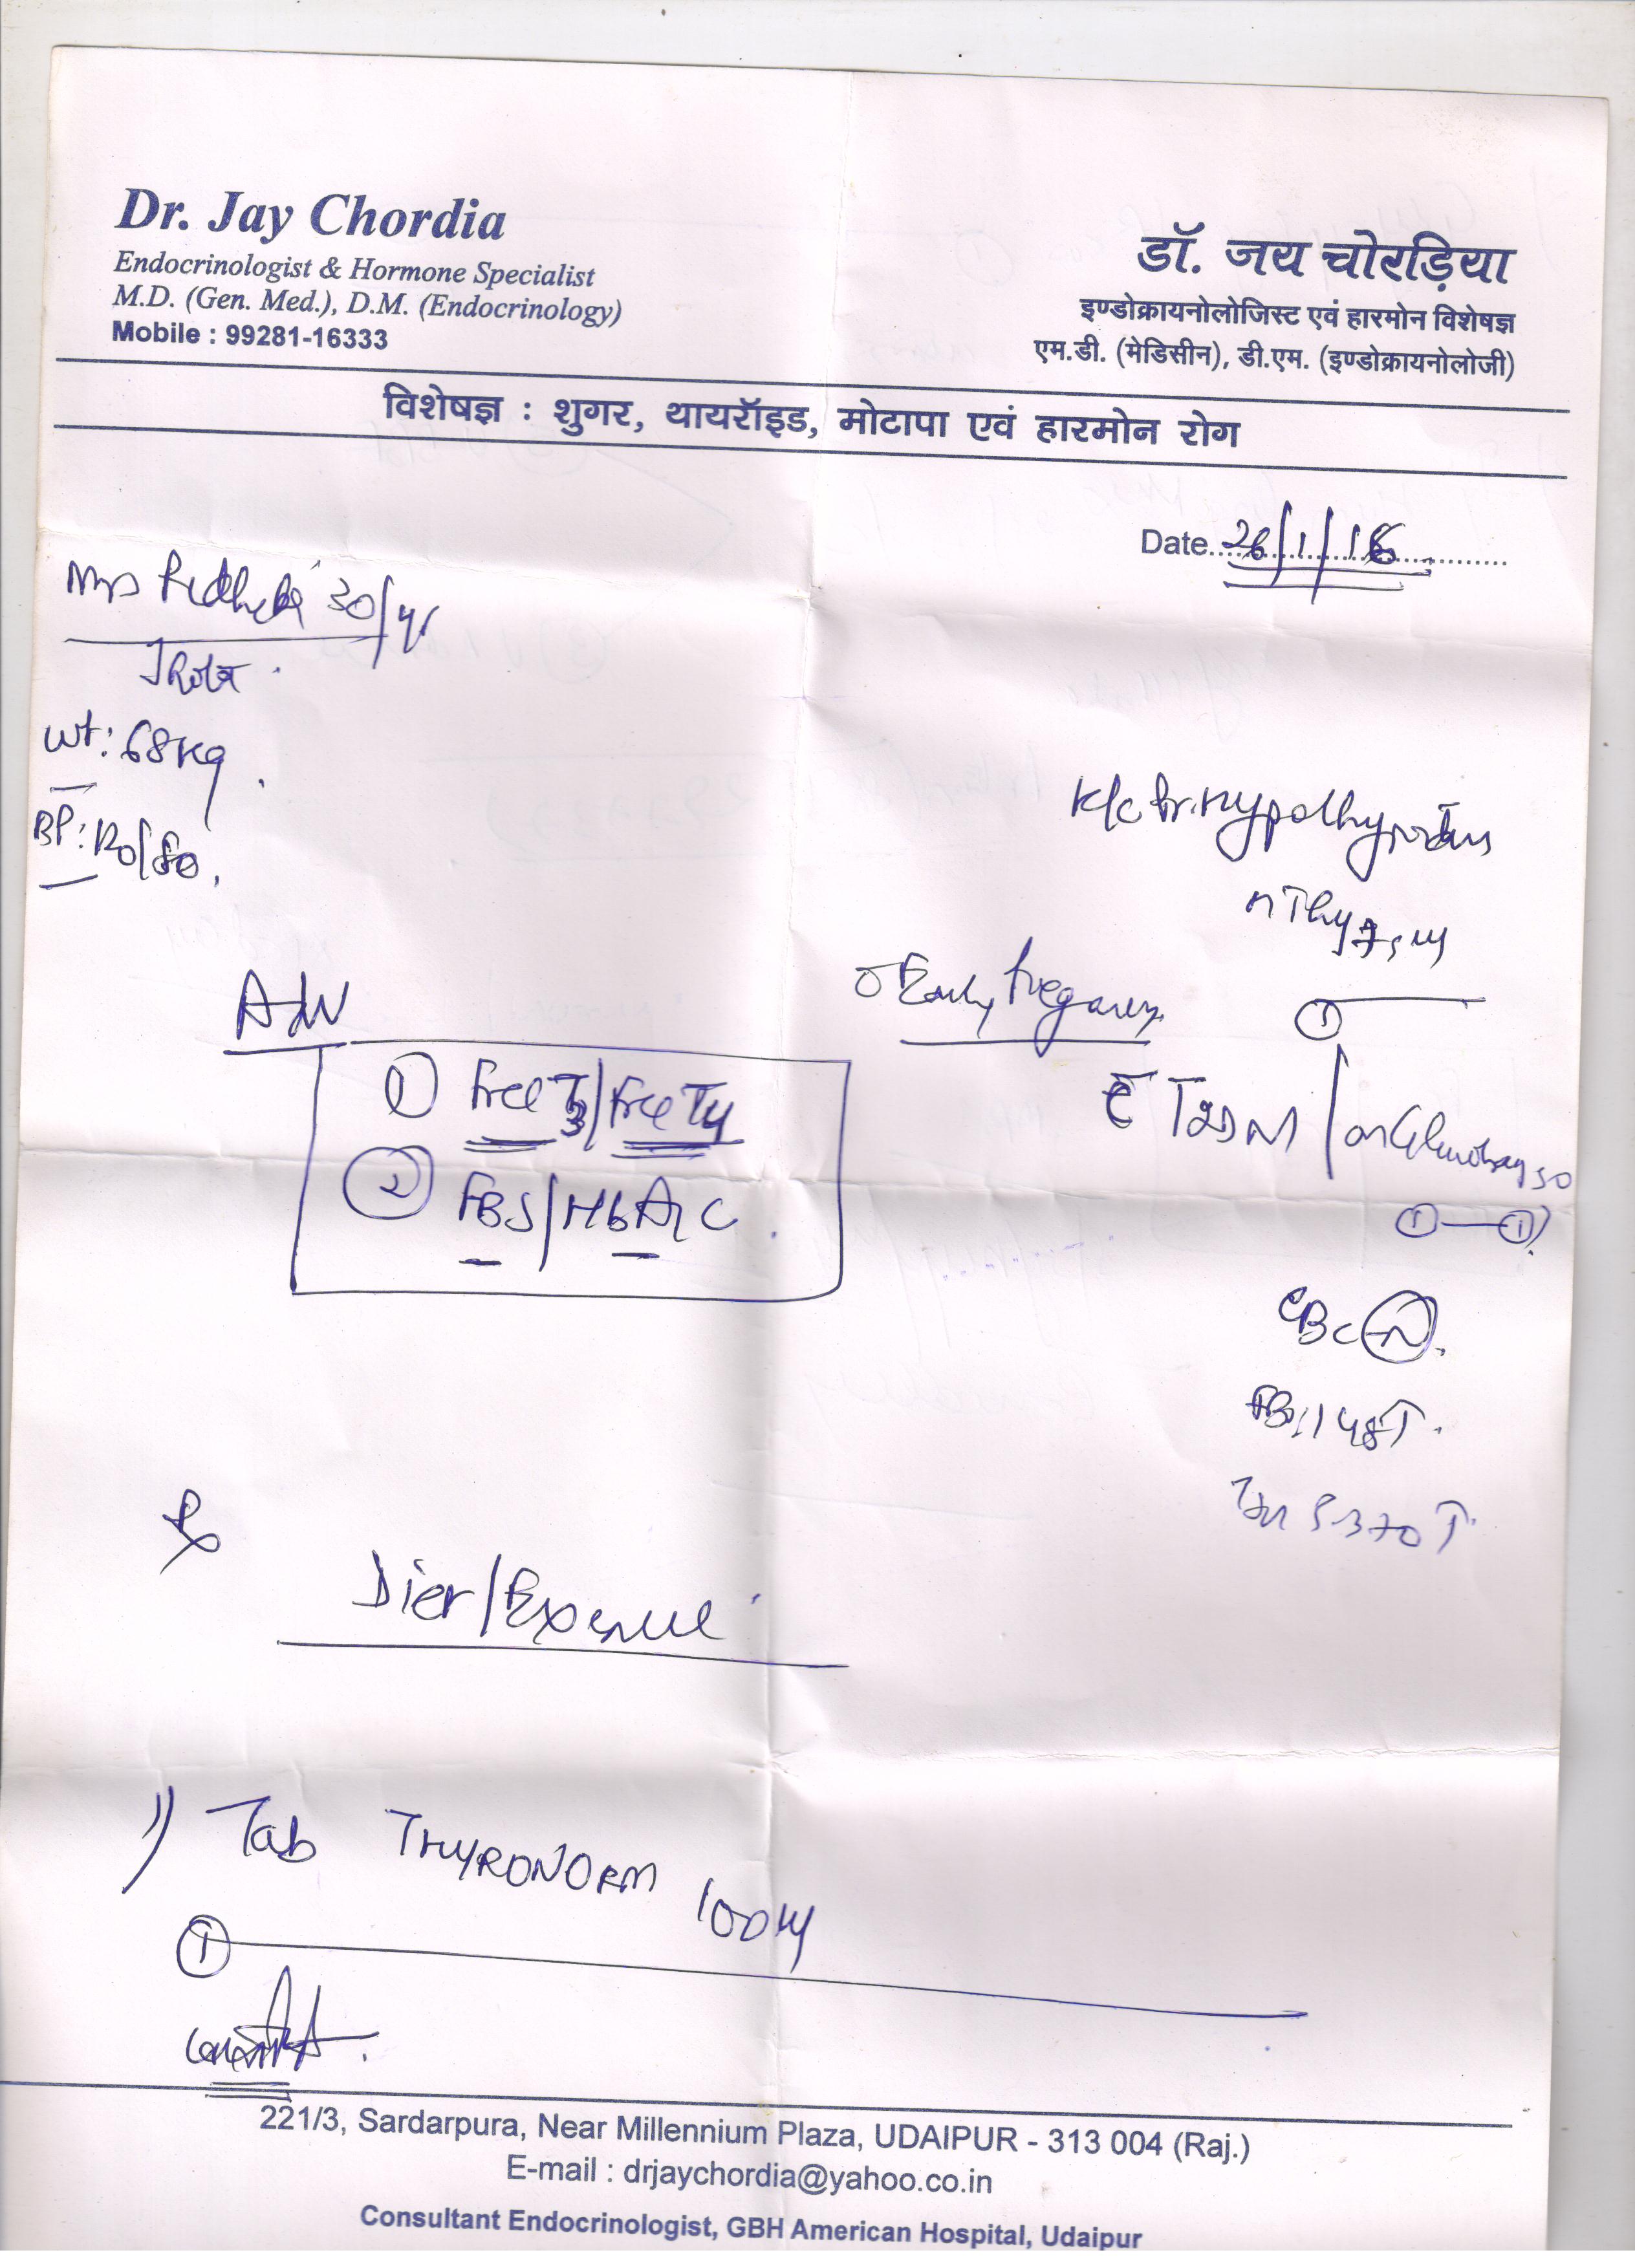 Dr. Jay Chordia
Endocrinologist & Hormone Specialist
M.D. (Gen. Med.), D.M. (Endocrinology)
Mobile : 99281-16333
डॉ. जय चोरड़िया
इण्डोक्रायनोलोजिस्ट एवं हारमोन विशेषज्ञ
एम.डी. (मेडिसीन), डी.एम. (इण्डोक्रायनोलोजी)
विशेषज्ञ : शुगर, थायरॉइड, मोटापा एवं हारमोन रोग
Date 26/1/16
Mrs 30/yr
Wt: 68 kg
BP: 120/80
K/c Hypothyroidism
Early Pregnancy
①
T2DM / on
①—①
A/W
① Free T3/Free T4
② FBS/HbA1C
CBC N
148↑
5.370↑
Rx
Diet/Exercise
1) Tab THYRONORM 100
①
221/3, Sardarpura, Near Millennium Plaza, UDAIPUR - 313 004 (Raj.)
E-mail : drjaychordia@yahoo.co.in
Consultant Endocrinologist, GBH American Hospital, Udaipur